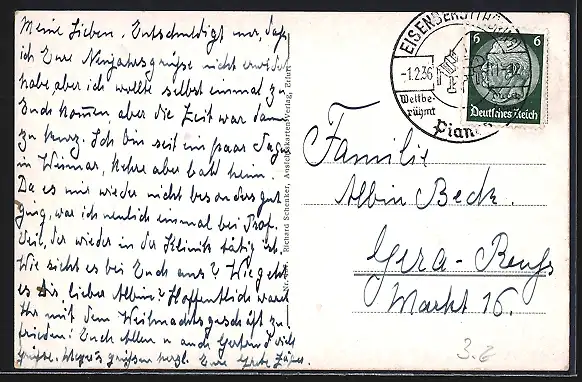 Meine Lieben. Entschuldigt nur, daß
ich Eure Neujahrsgrüße nicht erwidert
habe, aber ich wollte selbst einmal zu
Euch kommen, aber die Zeit war dann
zu kurz. Ich bin seit ein paar Tagen
in Weimar, kehre aber bald heim.
Da es mir wieder nicht besonders gut
ging, war ich neulich einmal bei Prof.
Veil, der wieder in der Klinik tätig ist.
Wie sieht es bei Euch aus? Wie geht
es Dir lieber Albin? Hoffentlich wart
Ihr mit dem Weihnachtsgeschäft zu-
frieden! Euch Allen u. auch Gertrud viele
Grüße. grüßen herzl. Eure
Richard Schenker, Ansichtskarten-Verlag, Erfurt
EISENBERG (THÜR)
-1.2.36
Weltbe-
rühmt
Pianos
6 6
Deutsches Reich
Familie
Albin Beck.
Gera-Reuß
Markt 16.
3.2